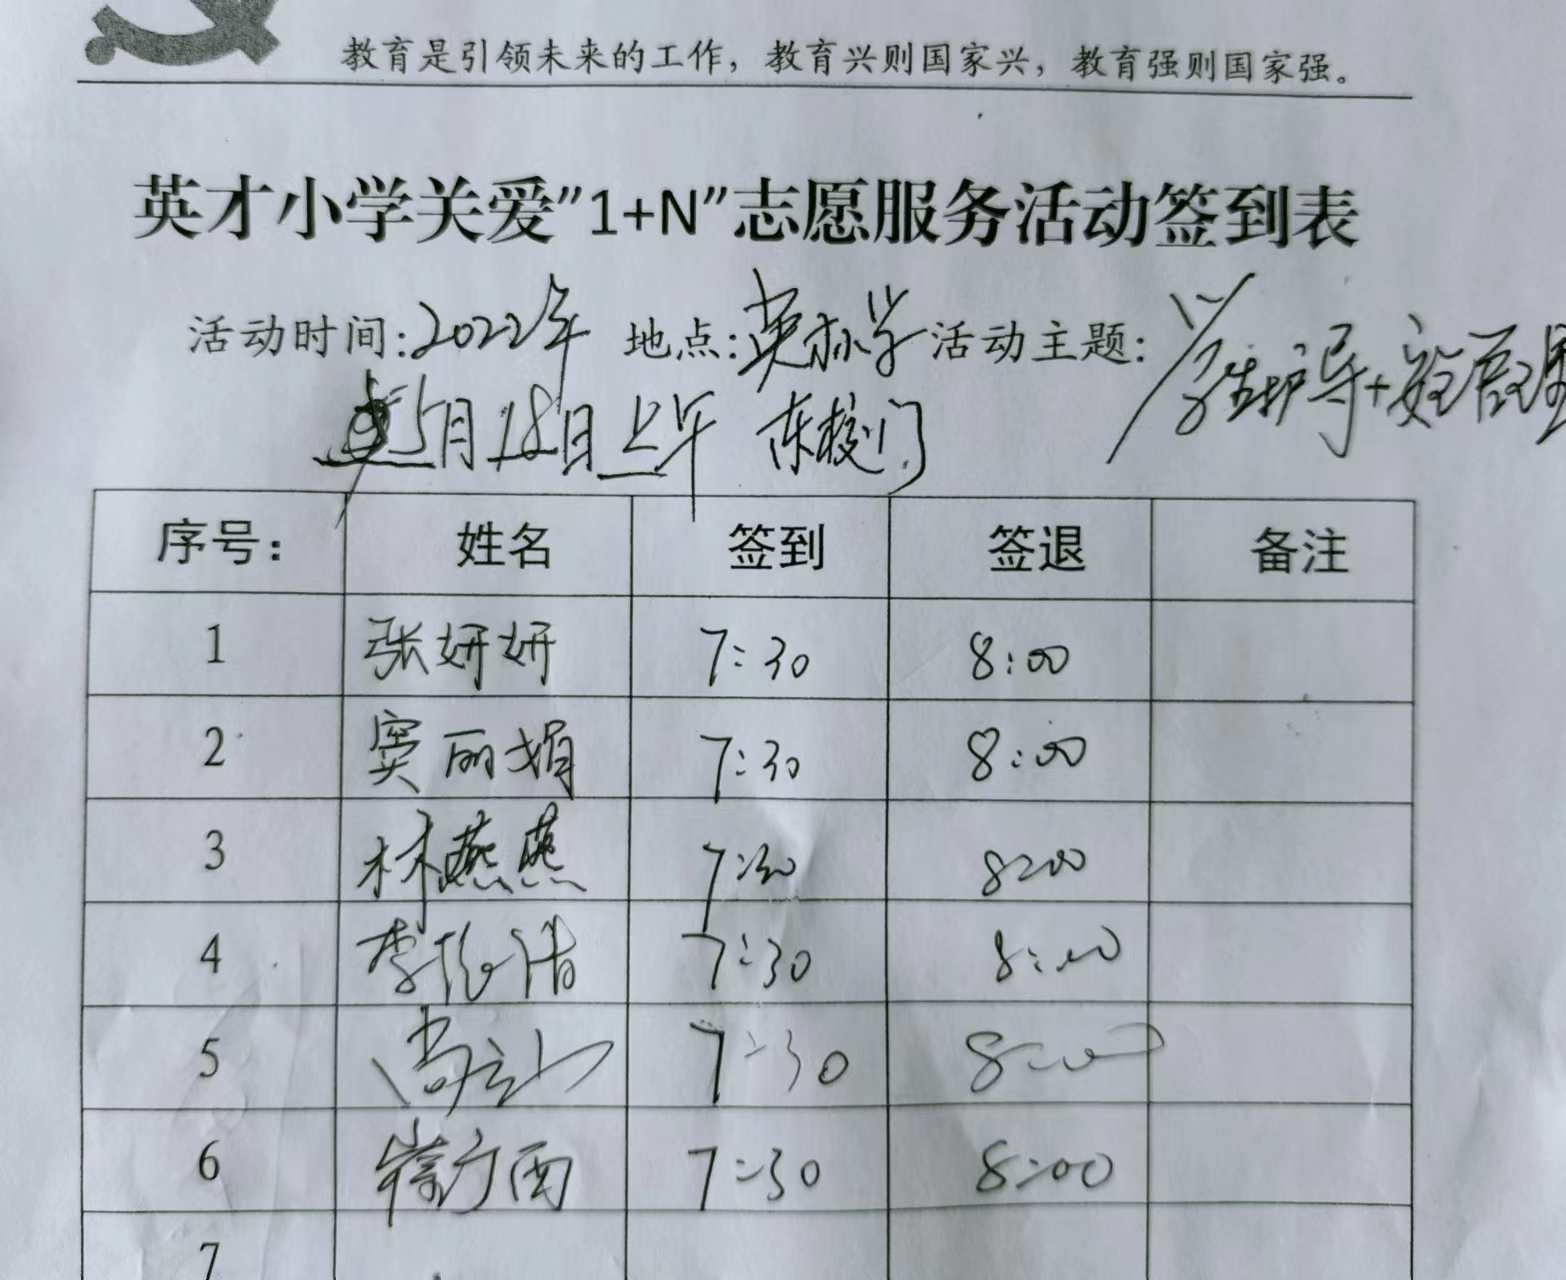 教育是引领未来的工作，教育兴则国家兴，教育强则国家强。
英才小学关爱”1+N”志愿服务活动签到表
活动时间:2022年 地点:英才小学 活动主题:学生护导+安全管理
5月18日上午 东校门
序号： 姓名 签到 签退 备注
1 张妍妍 7:30 8:00
2 窦丽娟 7:30 8:00
3 林燕燕 7:30 8:00
4 李 7:30 8:00
5 7:30 8:00
6 崔 7:30 8:00
7